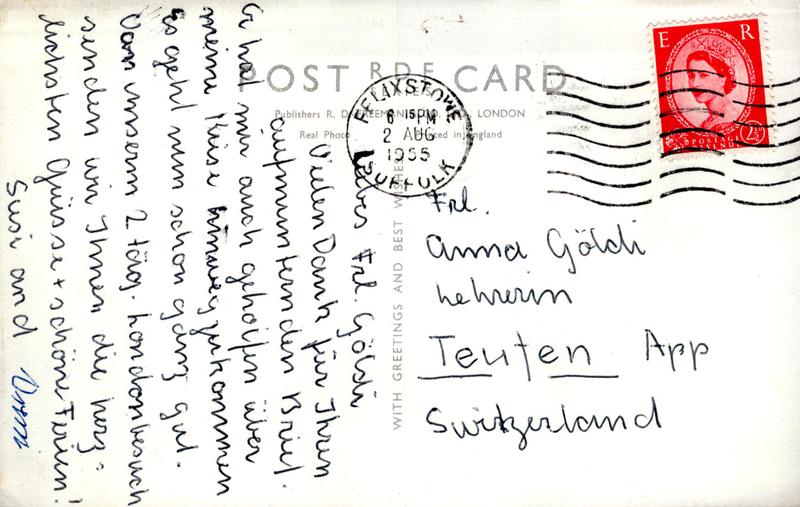 POST CARD
Publishers R. D. LONDON
Real Photo Printed in England
WITH GREETINGS AND BEST WISHES
FELIXSTOWE
6 15 PM
2 AUG
1955
SUFFOLK
E R
POSTAGE
2½
Liebes Frl. Göldi
Vielen Dank für Ihren
aufmunternden Brief.
Er hat mir auch geholfen über
meine Krise hinwegzukommen
Es geht nun schon ganz gut.
Von unserm 2 täg. Londonbesuch
senden wir Ihnen die herz-
lichsten Grüsse + schöne Ferien!
Susi and
Frl.
Anna Göldi
Lehrerin
Teufen App
Switzerland